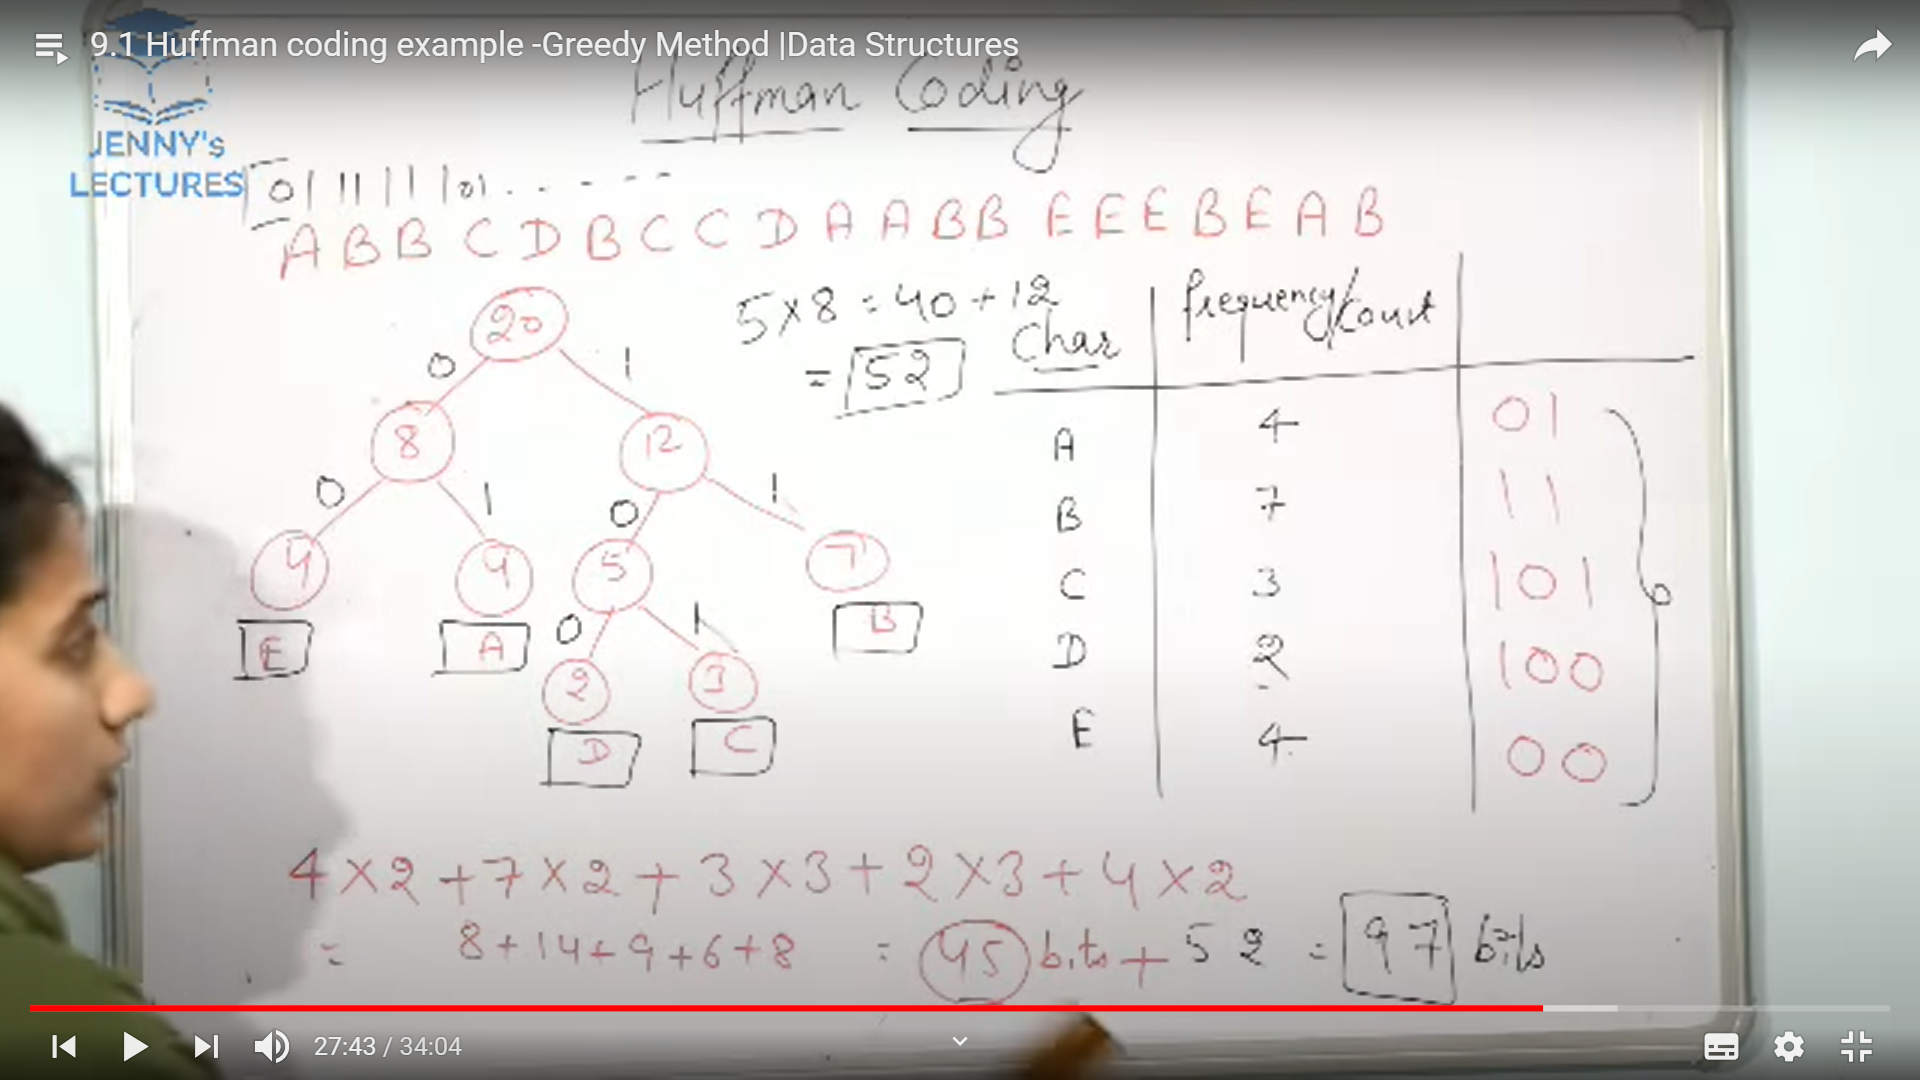 9.1 Huffman coding example -Greedy Method |Data Structures
Huffman Coding
JENNY's
LECTURES
01 11 11 101 . . - - - -
A B B C D B C C D A A B B E E E B E A B
5 × 8 = 40 + 12
= 52
20
0 1
8 12
0 1 0 1
4 4 5 7
E A 0 1 B
2 3
D C
Char frequency/count
A 4 01
B 7 11
C 3 101
D 2 100
E 4 00
4 × 2 + 7 × 2 + 3 × 3 + 2 × 3 + 4 × 2
= 8 + 14 + 9 + 6 + 8 = 45 bits + 52 = 97 bits
27:43 / 34:04